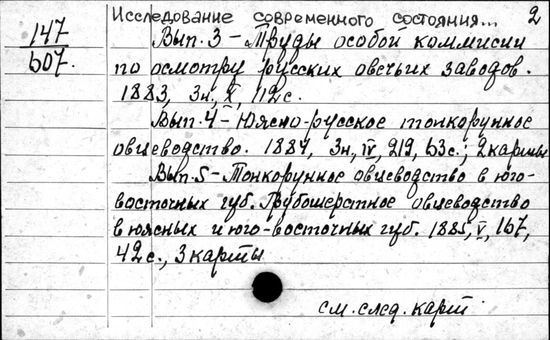 Исследование современного состояния... 2
147
607.
Вып. 3 – Труды особой коммисии
по осмотру русских овечьих заводов.
1883, 3н, X, 112 с.
Вып. 4 – Южно-русское тонкорунное
овцеводство. 1884, 3н, IV, 219, 63 с.; 2 карты
Вып. 5 – Тонкорунное овцеводство в юго-
восточных губ. Грубошерстное овцеводство
в южных и юго-восточных губ. 1885, V, 167,
42 с., 3 карты
см. след. карт.